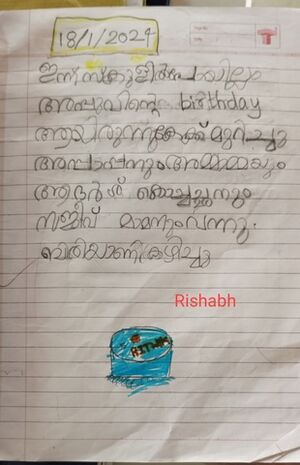 18/1/2024
ഇന്ന് സ്കൂളിൽ പോയില്ല
അപ്പുവിന്റെ birthday
ആയിരുന്നു കേക്ക് മുറിച്ചു
അപ്പാപ്പനും അമ്മമ്മയും
ആദർശ് കൊച്ചച്ചനും
സജീവ് മാമനും വന്നു.
ബരിയാണി കഴിച്ചു
Rishabh